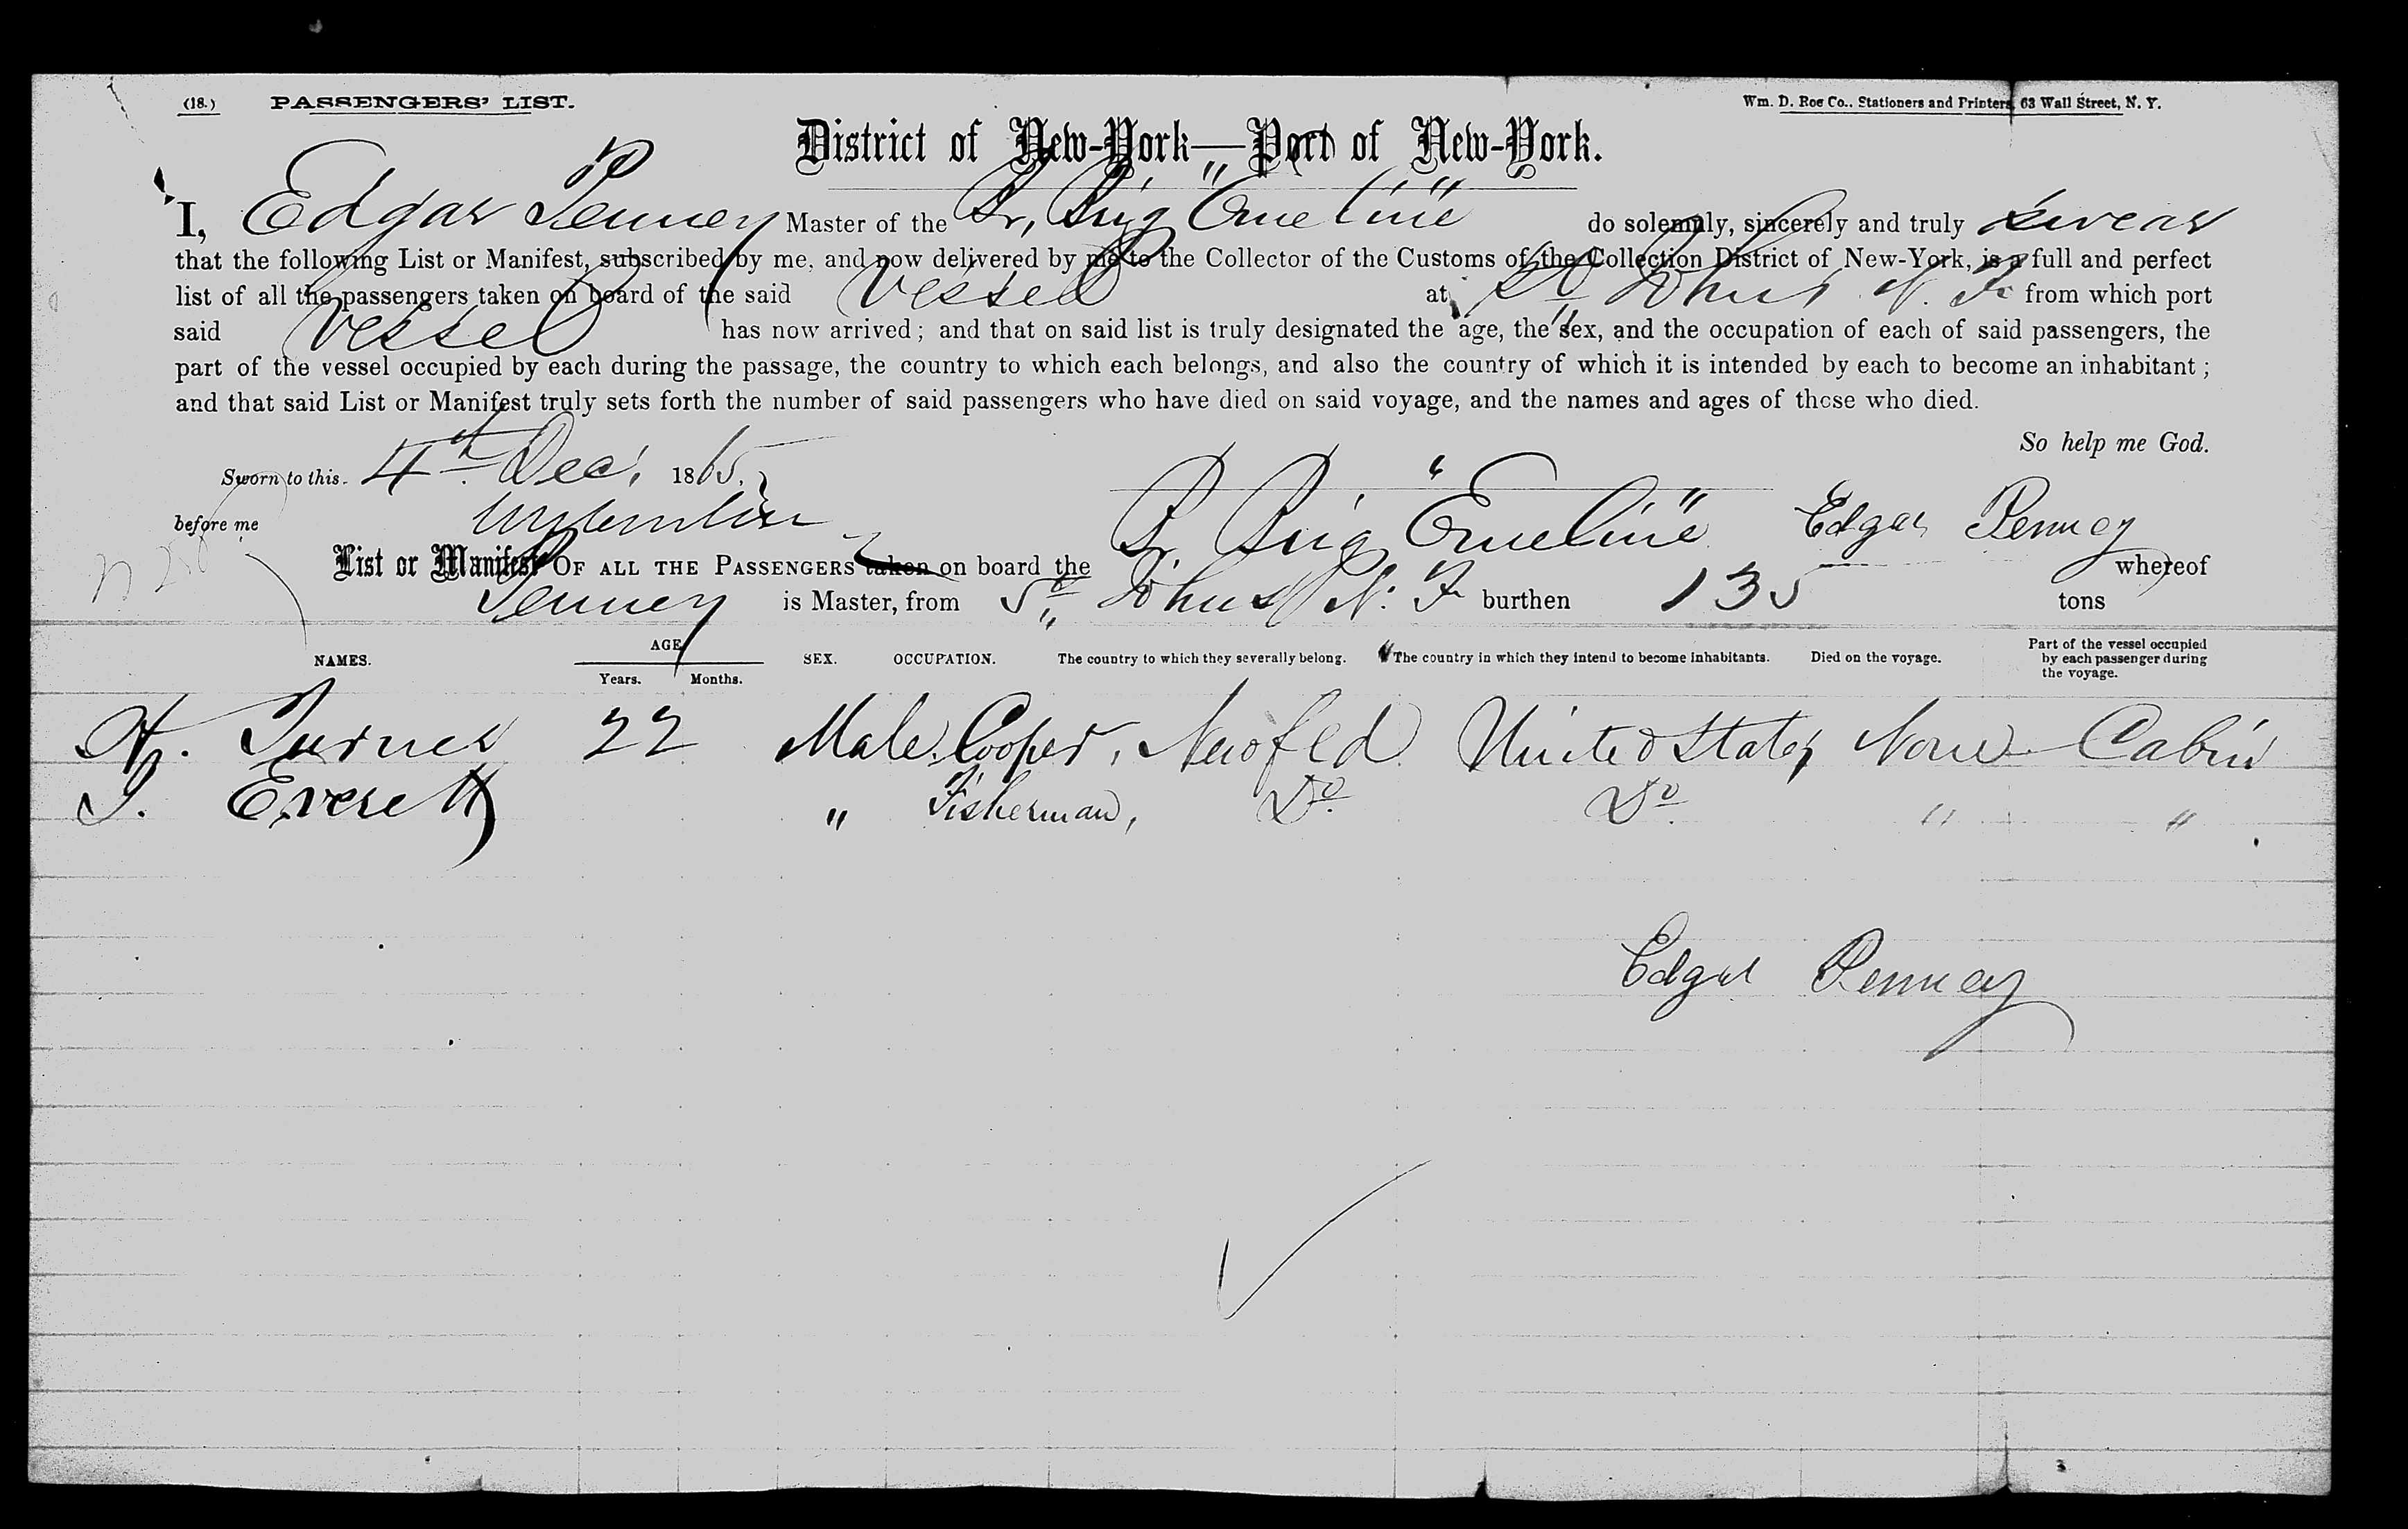 (18.) PASSENGERS' LIST. Wm. D. Roe Co., Stationers and Printers, 63 Wall Street, N. Y.
District of New-York—Port of New-York.
I, Edgar Penney Master of the Br, Brig "Emeline" do solemnly, sincerely and truly swear
that the following List or Manifest, subscribed by me, and now delivered by me to the Collector of the Customs of the Collection District of New-York, is a full and perfect
list of all the passengers taken on board of the said Vessel at St Johns N. F. from which port
said Vessel has now arrived; and that on said list is truly designated the age, the sex, and the occupation of each of said passengers, the
part of the vessel occupied by each during the passage, the country to which each belongs, and also the country of which it is intended by each to become an inhabitant;
and that said List or Manifest truly sets forth the number of said passengers who have died on said voyage, and the names and ages of those who died.
So help me God.
Sworn to this 4th Dec. 1865,
before me
Edgar Penney
List or Manifest OF ALL THE PASSENGERS taken on board the Br Brig "Emeline" whereof
Penney is Master, from St Johns N. F. burthen 135 tons
NAMES. AGE Years. Months. SEX. OCCUPATION. The country to which they severally belong. The country in which they intend to become inhabitants. Died on the voyage. Part of the vessel occupied by each passenger during the voyage.
H. Turner 22 Male. Cooper, Newfld United States None Cabin
J. Everett " Fisherman, Do Do " "
Edgar Penney